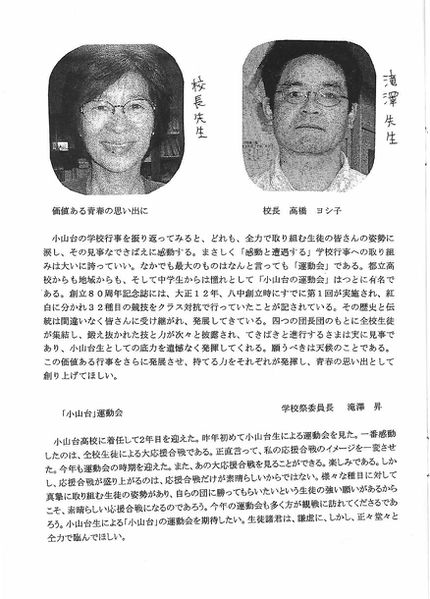 校長先生
滝澤先生
価値ある青春の思い出に
校長　高橋　ヨシ子
小山台の学校行事を振り返ってみると、どれも、全力で取り組む生徒の皆さんの姿勢に
涙し、その見事なできばえに感動する。まさしく「感動と遭遇する」学校行事への取り組
みは大いに誇っていい。なかでも最大のものはなんと言っても「運動会」である。都立高
校からも地域からも、そして中学生からは憧れとして「小山台の運動会」はつとに有名で
ある。創立８０周年記念誌には、大正１２年、八中創立時にすでに第１回が実施され、紅
白に分かれ３２種目の競技をクラス対抗で行っていたことが記されている。その歴史と伝
統は間違いなく皆さんに受け継がれ、発展してきている。四つの団長団のもとに全校生徒
が集結し、鍛え抜かれた技と力が次々と披露され、てきぱきと進行するさまは実に見事で
あり、小山台生としての底力を遺憾なく発揮してくれる。願うべきは天候のことである。
この価値ある行事をさらに発展させ、持てる力をそれぞれが発揮し、青春の思い出として
創り上げてほしい。
「小山台」運動会
学校祭委員長　滝澤　昇
小山台高校に着任して2年目を迎えた。昨年初めて小山台生による運動会を見た。一番感動
したのは、全校生徒による大応援合戦である。正直言って、私の応援合戦のイメージを一変させ
た。今年も運動会の時期を迎えた。また、あの大応援合戦を見ることができる。楽しみである。しか
し、応援合戦が盛り上がるのは、応援合戦だけが素晴らしいからではない。様々な種目に対して
真摯に取り組む生徒の姿勢があり、自らの団に勝ってもらいたいという生徒の強い願いがあるから
こそ、素晴らしい応援合戦になるのであろう。今年の運動会も多く方が観戦に訪れてくださるであ
ろう。小山台生による「小山台」の運動会を期待したい。生徒諸君は、謙虚に、しかし、正々堂々と
全力で臨んでほしい。